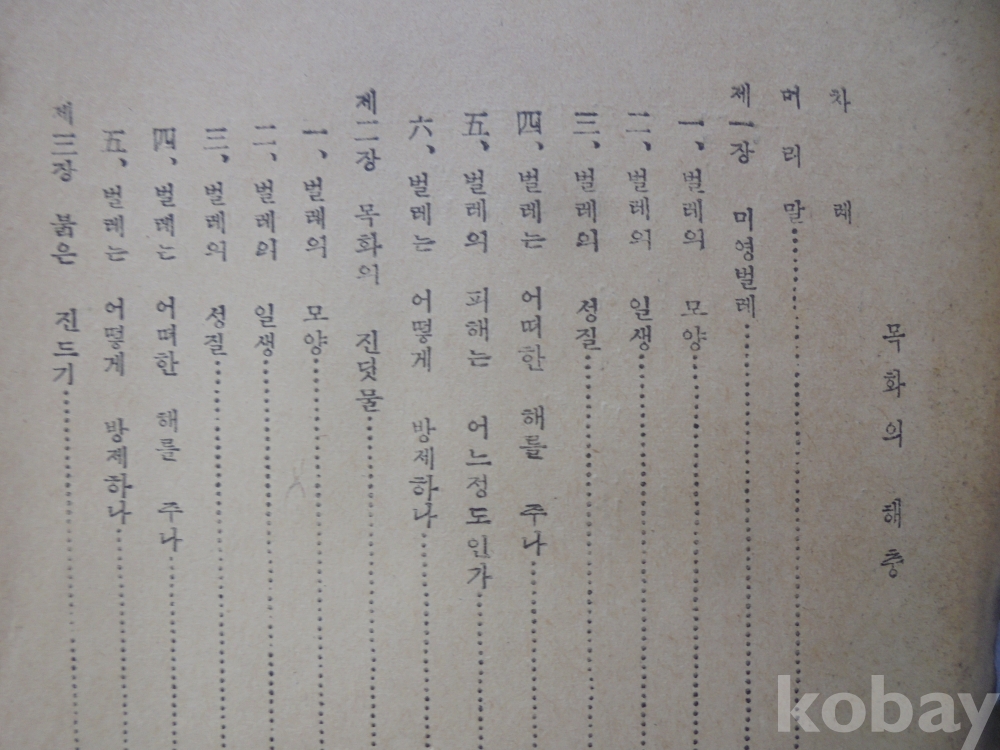 목화의 해충
차례
머리말
제一장 미영벌레
一、벌레의 모양
二、벌레의 일생
三、벌레의 성질
四、벌레는 어떠한 해를 주나
五、벌레의 피해는 어느정도인가
六、벌레는 어떻게 방제하나
제二장 목화의 진딧물
一、벌레의 모양
二、벌레의 일생
三、벌레의 성질
四、벌레는 어떠한 해를 주나
五、벌레는 어떻게 방제하나
제三장 붉은 진드기
kobay